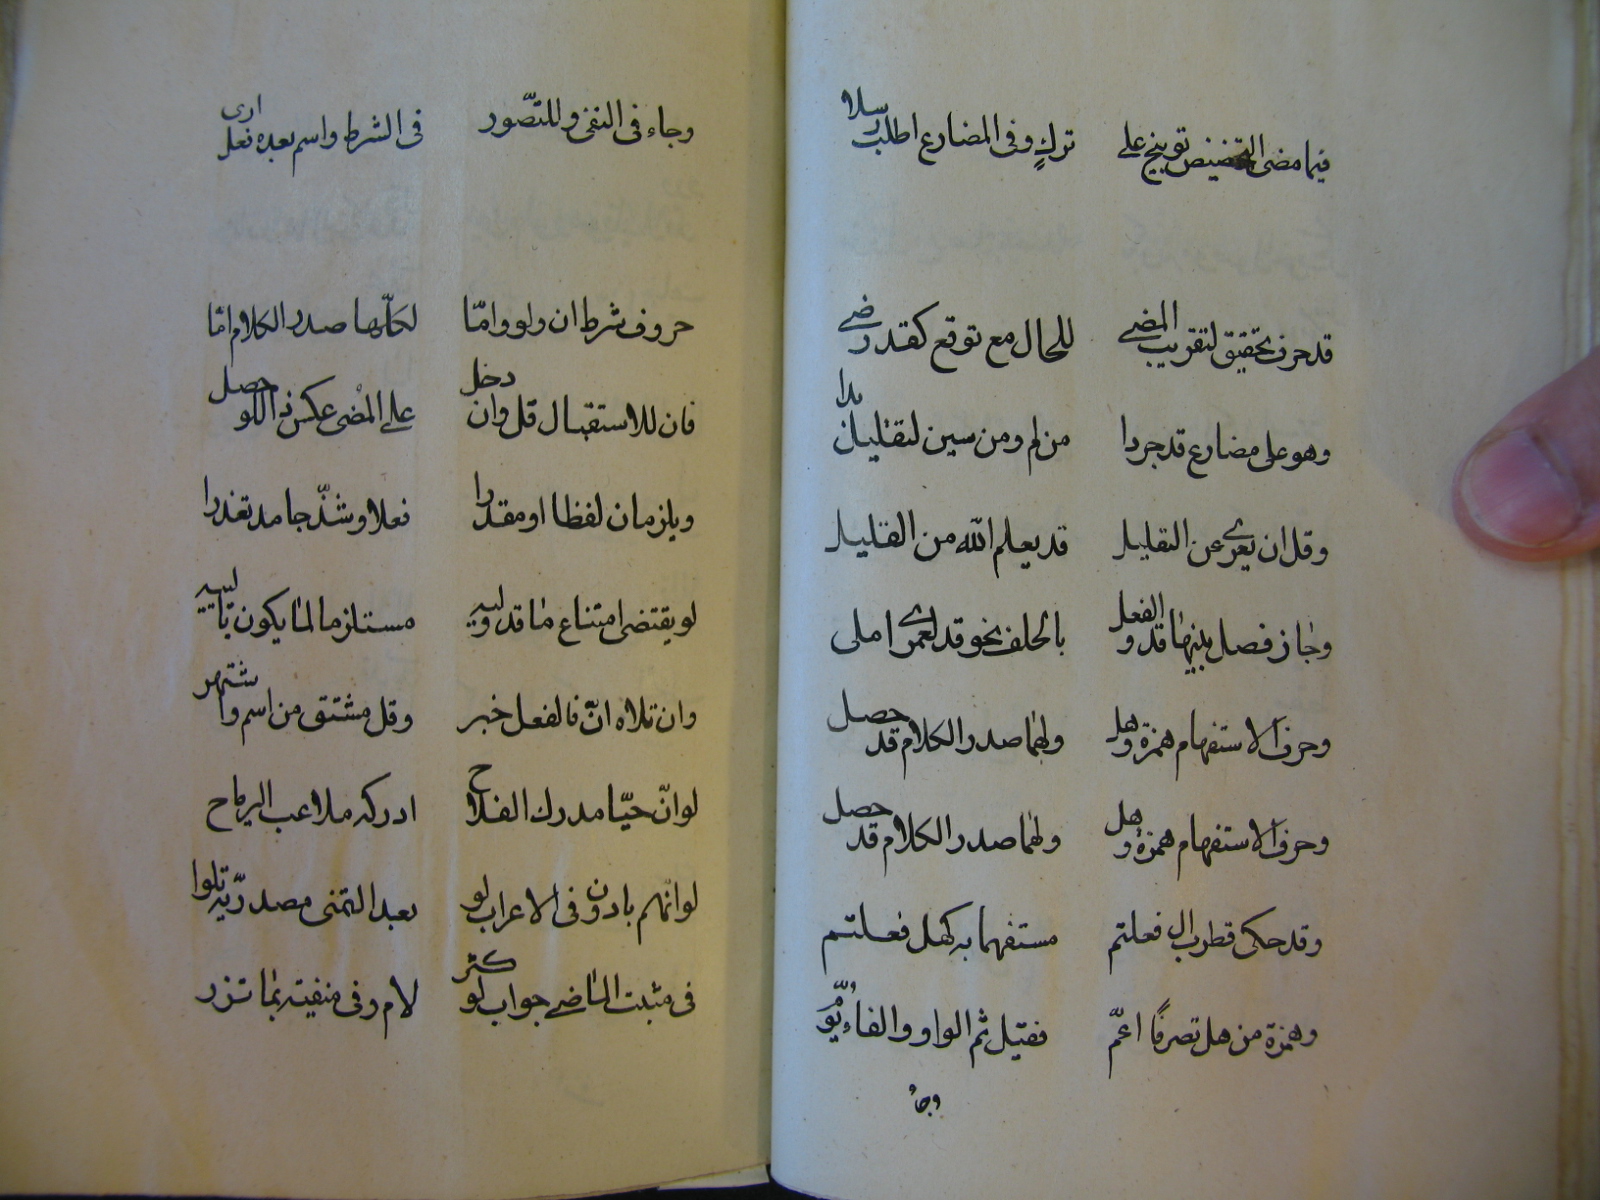 فيما مضى التحضيض توبيخ على ترك وفى المضارع اطلب رسلا
قد حرف تحقيق لتقريب المضى للحال مع توقع كقد رضى
وهو على مضارع قد جردا من لم ومن سين لتقليل بدا
وقل ان يعرى عن التقليل قد يعلم الله من القليل
وجاز فصل بينها قد والفعل بالحلف نحو قد لعمرى املى
وحرفا الاستفهام همزة وهل ولهما صدر الكلام قد حصل
وحرفا الاستفهام همزة وهل ولهما صدر الكلام قد حصل
وقد حكى قطرب ال فعلتم مستفهما به كهل فعلتم
وهمزة من هل تصرفًا اعمّ فقبل ثم الواو والفاء يؤمّ
وجاء
وجاء فى النفى وللتصّور فى الشرط واسم بعده فعل ارى
حروف شرط ان ولو وامّا لكلّها صدر الكلام امّا
فان للاستقبال قل وان دخل على المضى عكس ذا للو حصل
ويلزمان لفظا او مقدرا فعلا وشذّ جامد تعذرا
لو يقتضى امتناع ما قد وليه مستلزما لما يكون تاليه
وان تلاه انّ فالفعل خبر وقل مشتق من اسم واشتهر
لو انّ حيّا مدرك الفلاح ادركه ملاعب الرماح
لو انّهم بادون فى الاعراب لو بعد التمنى مصدريّة تلوا
فى مثبت الماضى جواب لو كثر لام وفى منفيه بما نزر